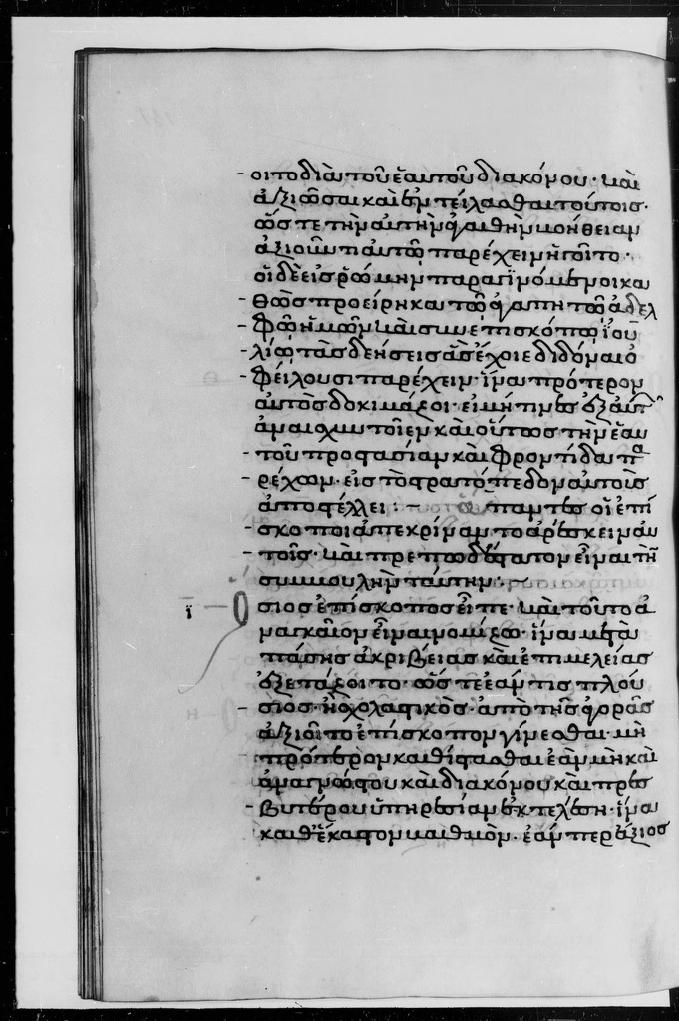 οιτο διὰ τοῦ ἑαυτοῦ διακόνου· καὶ
ἀξιῶσαι καὶ ἐντείλασθαι τούτοις·
ὥστε τὴν αὐτὴν ἀγαθὴν βοήθειαν
ἀξιοῦντι αὐτῶ παρέχειν ἥττοιτο·
οἱ δὲ εἰς ῥώμην παραγινόμενοι κα
θὼς προείρηκα τῶ ἀγαπητῶ ἀδελ
φῶ ἡμῶν καὶ συνεπισκόπω ἰου
λίω τὰς δεήσεις ἃς ἔχοιε διδόναι ὀ
φείλουσι παρέχειν· ἵνα πρότερον
αὐτὸς δοκιμάσοι· εἰ μή τινες ἐξ αὐτῶν
ἀναισχυντοῖεν καὶ οὕτως τὴν ἑαυ
τοῦ προστασίαν καὶ φροντίδα πα
ρέχων· εἰς τὸ στρατόπεδον αὐτοὺς
ἀποστέλλει :– ἅπαντες οἱ ἐπί
σκοποι ἀπεκρίναντο ἀρέσκειν αὐ
τοῖς· καὶ πρεπωδέστατον εἶναι τὴν
συμβουλὴν ταύτην :~
ῑ ὅσιος ἐπίσκοπος εἶπε· καὶ τοῦτο ἀ
ναγκαῖον εἶναι νομίζω· ἵνα μετὰ
πάσης ἀκριβείας καὶ ἐπιμελείας
ἐξετάζοιτο· ὥστε ἐάν τις πλού
σιος· ἢ σχολαστικὸς· ἀπὸ τῆς ἀγορᾶς
ἀξιοῖτο ἐπίσκοπον γίνεσθαι· μὴ
πρότερον καθίστασθαι ἐὰν μὴ καὶ
ἀναγνώστου καὶ διακόνου καὶ πρεσ
βυτέρου ὑπηρεσίαν ἐκτελέση· ἵνα
καθ' ἕκαστον βαθμὸν· ἐάν περ ἄξιος